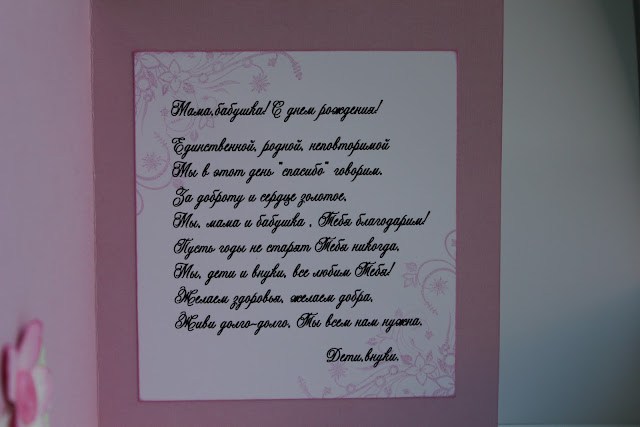 Мама,бабушка! С днем рождения!
Единственной, родной, неповторимой
Мы в этот день "спасибо" говорим.
За доброту и сердце золотое,
Мы, мама и бабушка , Тебя благодарим!
Пусть годы не старят Тебя никогда,
Мы, дети и внуки, все любим Тебя!
Желаем здоровья, желаем добра,
Живи долго-долго, Ты всем нам нужна.
Дети,внуки.